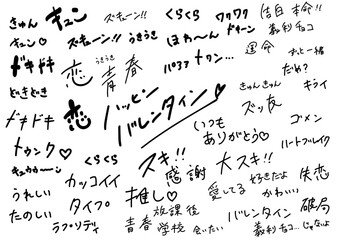 きゅん キュン ズキューン!! くらくら ワクワク 告白 本命!!
キュン♡ ズキューン!! うきうき ほわ〜ん ドキーン 義理チョコ
ドキドキ 恋 うきうき 青春 トゥン… 運命 ずっと一緒
どきどき だめ?
ドキドキ 恋 ハッピー バレンタイン きゅんきゅん キライ
ズッ友
トゥンク♡ くらくら いつも ありがとう♡ ゴメン
ハートブレイク
うれしい カッコイイ スキ!! 大スキ!!
たのしい タイプ 感謝 好きだよ 失恋
ラプソディ 推し♡ 愛してる かわいい
青春 放課後 バレンタイン 破局
学校 会いたい 義理チョコ…じゃないよ